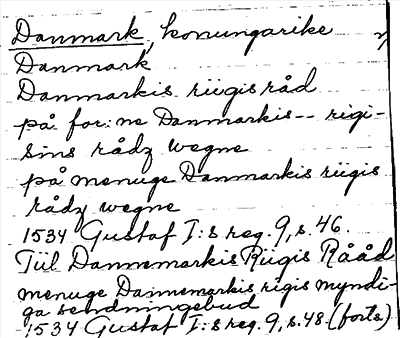 Danmark, konungarike
Danmark
Danmarkis riigis råd
på for: ne Danmarkis-- rigi-
sins rådz wegne
på menuge Danmarkis riigis
rådz wegne
1534 Gustaf I:s reg. 9, s. 46.
Tiil Dannemarkis Riigis Rååd
menuge Dannemarkis rigis myndi-
ga sendningebud
1534 Gustaf I:s reg. 9, s. 48. (forts.)